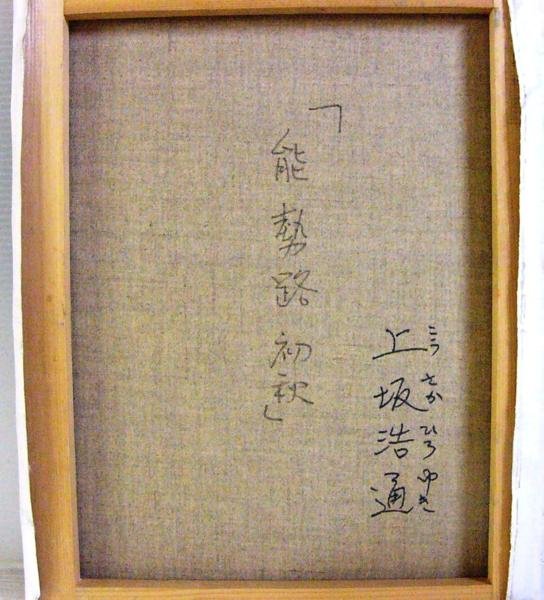 「能勢路初秋」
上坂浩通
こうさかひろゆき